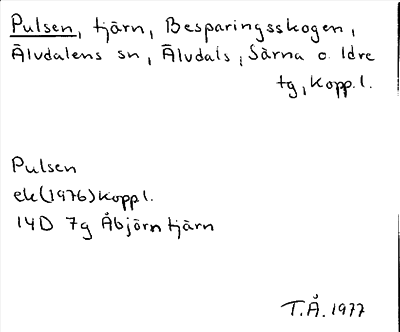 Pulsen, tjärn, Besparingsskogen,
Älvdalens sn, Älvdals, Särna o. Idre
tg, Kopp. l.
Pulsen
ek (1976) Kopp l.
14D 7g Åbjörntjärn
T.Å. 1977